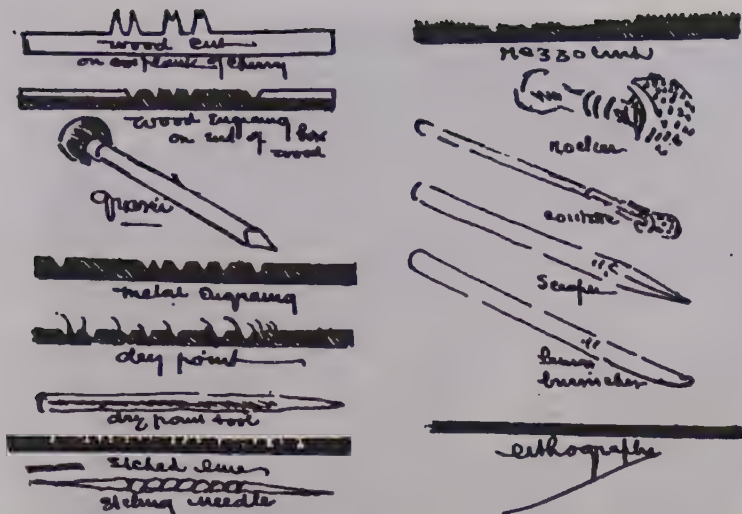 wood cut
on plank of cherry
wood engraving
on end of box
wood
graver
metal engraving
dry point
dry point tool
etched line
etching needle
mezzotint
rocker
roulette
scraper
burnisher
lithography